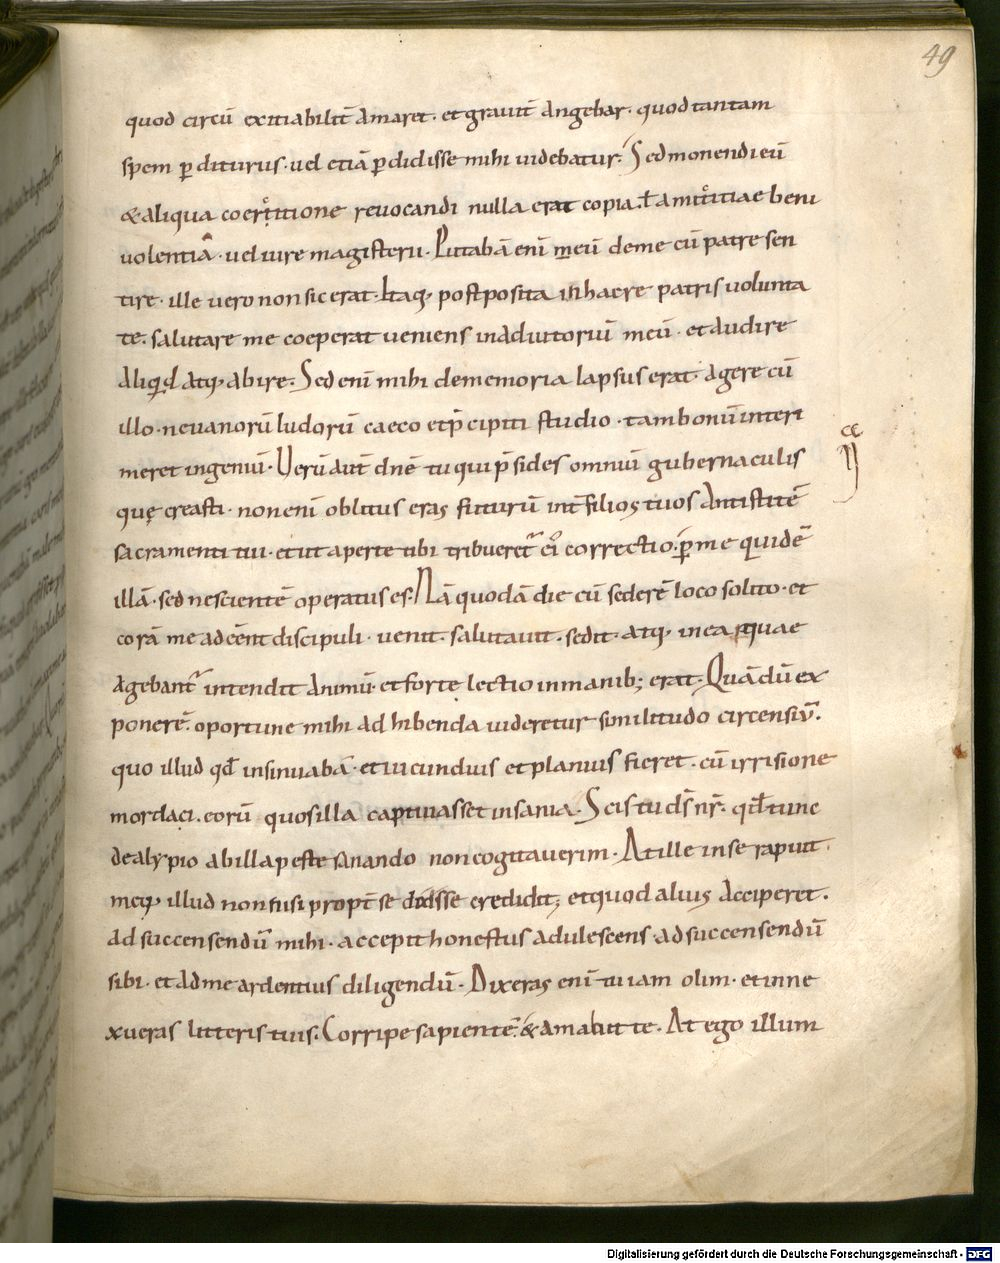 49
quod circū exitiabilit̄ amaret· et grauit̄ angebar· quod tantam
spem ꝑditurus· uel etiā ꝑdidisse mihi uidebatur. Sed monendi eū
& aliqua coertitione reuocandi nulla erat copia. ł amicitiae beni
uolentia· uel iure magisterii· Putabā enī meū de me cū patre sen
tire· ille uero non sic erat· Itaq; postposita in hac re patris uolunta
te. salutare me coeperat ueniens in adiutoriū meū· et audire
aliqid atq; abire· Sed enī mihi de memoria lapsus erat· agere cū
illo· ne uanorū ludorū caeco et p̄cipiti studio· tam bonū interi
meret ingeniū· Uerū aut̄ dn̄e tu qui p̄sides omniū gubernaculis
quę creasti· non enī oblitus eras futurū int̄ filios tuos antistitē
sacramenti tui· et ut aperte tibi tribueret̄ ei' correctio. ꝑ me quidē
illā· sed nescientē operatus es· Nā quodā die cū sederē loco solito· et
corā me adēent discipuli· uenit· salutauit· sedit· atq; in ea quae
agebant̄ intendit animū· et forte lectio in manib; erat· Quā dū ex
ponerē. oportune mihi adhibenda uideretur similitudo circensiū.
quo illud qd̄ insinuabā· et iucundius et planius fieret· cū irrisione
mordaci. eorū quos illa captiuasset insania· Scis tu ds̄ nr̄· qd̄ tunc
de alypio ab illa peste sanando non cogitauerim· At ille in se rapuit·
meq; illud non nisi propt̄ se dixisse credidit; et quod alius acciperet·
ad succensendū mihi· accepit honestus adulescens ad succensendū
sibi· et ad me ardentius diligendū· Dixeras enī tu iam olim· et inne
xueras litteris tuis. Corripe sapientē. & amabit te· At ego illum
Digitalisierung gefördert durch die Deutsche Forschungsgemeinschaft - DFG